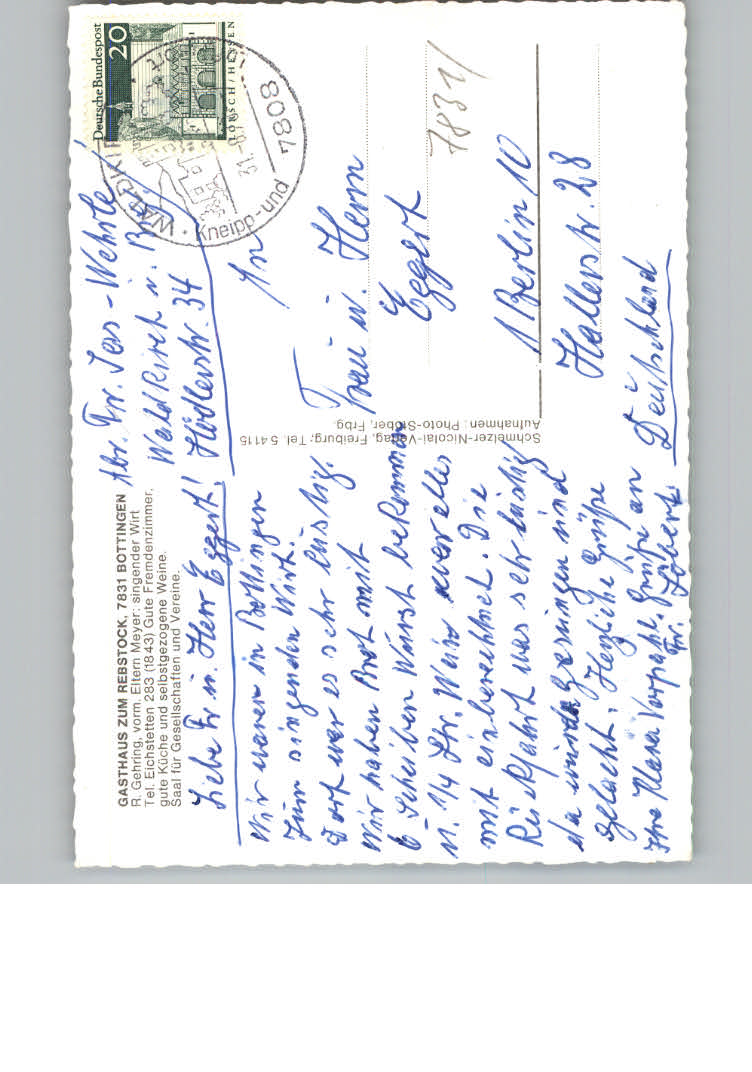 GASTHAUS ZUM REBSTOCK, 7831 BOTTINGEN
R. Gehring, vorm. Eltern Meyer: singender Wirt
Tel. Eichstetten 283 (1843) Gute Fremdenzimmer,
gute Küche und selbstgezogene Weine.
Saal für Gesellschaften und Vereine.
Liebe Fr u. Herr Eggert!
Wir waren in Bottingen
zum singenden Wirt.
Dort war es sehr lustig.
Wir haben Brot mit
6 Scheiben Wurst bekommen
u. 1/4 Ltr. Wein war alles
mit einberechnet. Die
Rückfahrt was sehr lustig
da wurde gesungen und
gelacht. Herzliche Grüße
Ihre Klara Grüße an
Fr.
Schmelzer-Nicolai-Verlag, Freiburg; Tel. 5 4115
Aufnahmen: Photo-Stober, Frbg.
Abr. Fr. -Wehrle
Waldkirch i. Brsg.
Hödlerstr. 34
Deutsche Bundespost
20
LORSCH/HESSEN
WALDKIR
Kneipp-und
7808
31.
An
Frau u. Herrn
Eggert
1 Berlin 10
Hallerstr. 28
Deutschland
7831/